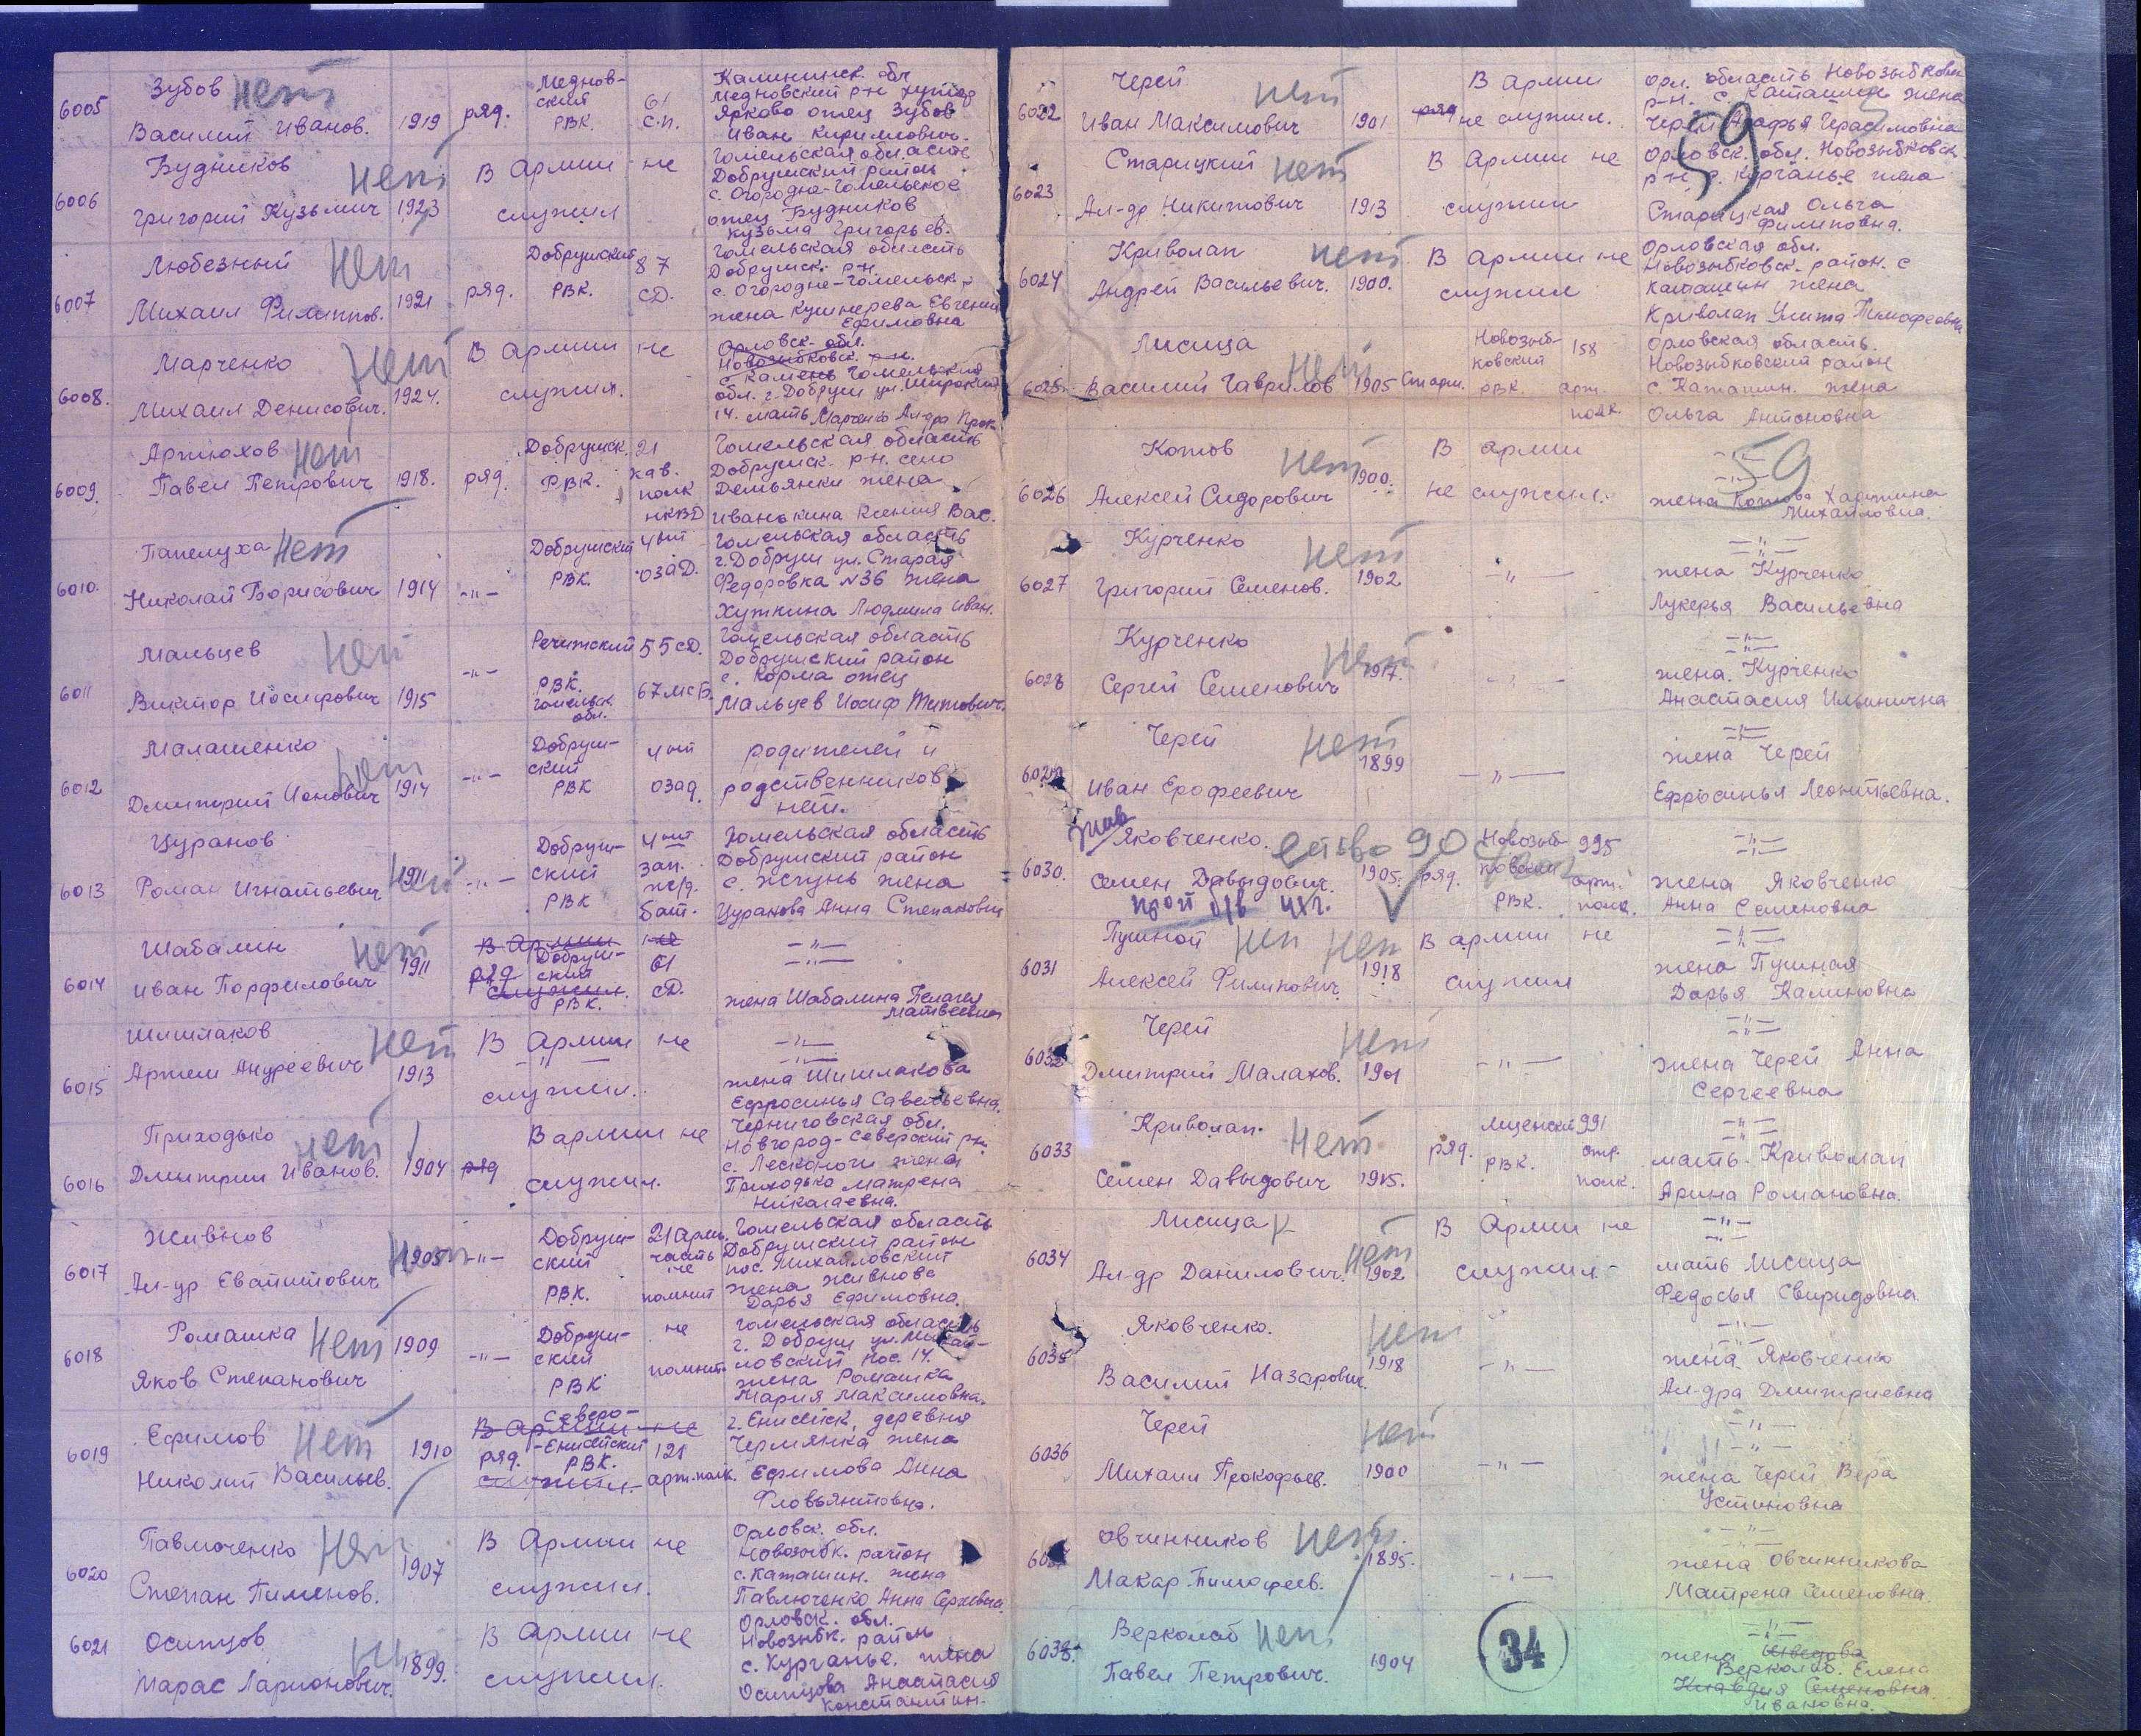 6005 Зубов нет
Василий Иванов. 1919 ряд. Меднов-
ский РВК. 61 с.п.
Калининск. обл
Медновский р-н хутор
Ярково отец Зубов
Иван Кириллович.
6006 Будников нет
Григорий Кузьмич 1923 В Армии не
служил
Гомельская область
Добрушский район
с. Огородня-Гомельское
отец Будников
Кузьма Григорьев.
6007 Любезный нет
Михаил Филиппов. 1921 ряд. Добрушский
РВК. 87
СД.
Гомельская область
Добрушск. р-н.
с. Огородня-Гомельск.
жена Кушнерева Евгения
Ефимовна
6008. Марченко нет
Михаил Денисович. 1924. В Армии не
служил.
Орловск. обл.
Новозыбковск. р-н.
с Камень Гомельская
обл. г. Добруш ул. Широкая
14. мать Марченко Ал-дра Прок.
6009. Артюхов нет
Павел Петрович 1918. ряд. Добрушск.
РВК. 21
кав.
полк
НКВД
Гомельская область
Добрушск. р-н. село
Демьянки жена
Иванькина Ксения Вас.
6010. Папелуха нет
Николай Борисович 1914 -"- Добрушский
РВК. 4ый
ОЗАД.
Гомельская область
г. Добруш ул. Старая
Федоровка N36 жена
Хуткина Людмила Иван.
6011 Мальцев нет
Виктор Иосифович 1915 -"- Речижский
РВК.
Гомельск.
обл. 55 СД.
67 МСБ.
Гомельская область
Добрушский район
с. Корма отец
Мальцев Иосиф Титович.
6012 Малашенко нет
Дмитрий Ионович 1914 -"- Добруш-
ский
РВК 4ый
озад.
родителей и
родственников
нет.
6013 Цуранов нет
Роман Игнатьевич 1911 -"- Добруш-
ский
РВК 4ый
зап.
ж/д.
бат.
Гомельская область
Добрушский район
с. Жгунь жена
Цуранова Анна Степановн
6014 Шабалин нет
Иван Порфилович 1911 В Армии не
ряд Добруш-
ский
служил.
РВК. 61
СД.
-"-
жена Шабалина Пелагея
Матвеевна
6015 Шишлаков нет
Артем Андреевич 1913 В Армии не
служил.
-"-
жена Шишлакова
Ефросинья Савельевна.
6016 Приходько нет
Дмитрий Иванов. 1904 ряд В армии не
служил.
Черниговская обл.
Новгород-Северский рн.
с. Лесконоги жена
Приходько Матрена
Николаевна.
6017 Живнов нет
Ал-др Евапитович 1905 -"- Добруш-
ский
РВК. 21 арм.
часть
не
помнит
Гомельская область
Добрушский район
пос. Михайловский
жена Живнова
Дарья Ефимовна.
6018 Ромашка нет
Яков Степанович 1909 -"- Добруш-
ский
РВК не
помнит.
Гомельская область
г. Добруш ул. Михай-
ловский пос. 14.
жена Ромашка
Мария Максимовна.
6019 Ефимов нет
Николай Васильев. 1910 В Армии не
ряд. Северо-
-Енисейский
РВК.
служил. 121
арт.полк.
г. Енисейск, деревня
Чермянка жена
Ефимова Анна
Фловьянтовна.
6020 Павлюченко нет
Степан Пименов. 1907 В Армии не
служил.
Орловск. обл.
Новозыбк. район
с. Каташин. жена
Павлюченко Анна Сергеевна.
6021 Осипцов
Тарас Ларионович. 1899. В Армии не
служил.
Орловск. обл.
Новозыбк. район
с. Курганье. жена
Осипцова Анастасия
Константин.
6022 Черей нет
Иван Максимович 1901 ряд В Армии
не служил.
Орл. область Новозыбков
р-н. с Каташин жена
Черей Агафья Герасимовна
59
6023 Старицкий нет
Ал-др Никитович 1913 В Армии не
служил
Орловск. обл. Новозыбковск.
р-н. с. Курганье жена
Старицкая Ольга
Филиповна.
6024 Криволап нет
Андрей Васильевич. 1900. В Армии не
служил
Орловская обл.
Новозыбковск. район. с
Каташин жена
Криволап Улита Тимофеевна
6025. Лисица нет
Василий Гаврилов 1905 Старш. Новозыб-
ковский
РВК 158
арт.
полк.
Орловская область.
Новозыбковский район
с Каташин. жена
Ольга Антоновна
6026 Котов нет
Алексей Сидорович 1900. В армии
не служил.
-"-
59
жена Котова Харитина
Михайловна.
6027 Курченко нет
Григорий Семенов. 1902 -"-
-"-
жена Курченко
Лукерья Васильевна
6028 Курченко нет
Сергей Семенович 1917. -"-
-"-
жена. Курченко
Анастасия Ильинична
6029 Черей нет
Иван Ерофеевич 1899 -"-
-"-
жена Черей
Ефросинья Леонтьевна.
6030. жив
Яковченко.
Семен Давыдович. 1905. ряд. Новозыб-
ковский
РВК. 995
арт.
полк.
-"-
жена Яковченко
Анна Семеновна
6031 Пушной нет нет
Алексей Филипович 1918 В армии не
служил
-"-
жена Пушная
Дарья Калиновна
6032 Черей нет
Дмитрий Малахов. 1901 -"-
-"-
жена Черей Анна
Сергеевна
6033 Криволап. нет
Семен Давыдович 1915. ряд. Мценский
РВК. 991
арт.
полк.
-"-
мать. Криволап
Арина Романовна.
6034 Лисица нет
Ал-др Данилович. 1902 В Армии не
служил
-"-
мать Лисица
Федосья Свиридовна
6035 Яковченко. нет
Василий Назарович. 1918 -"-
-"-
жена Яковченко
Ал-дра Дмитриевна
6036 Черей нет
Михаил Прокофьев. 1900 -"-
-"-
жена Черей Вера
Устиновна
6037 Овчинников нет
Макар Тимофеев. 1895. -"-
-"-
жена Овчинникова
Матрена Семеновна.
6038. Верколаб нет
Павел Петрович. 1904
34
-"-
жена Шведова
Верколаб. Елена
Клавдия Семеновна
Ивановна.